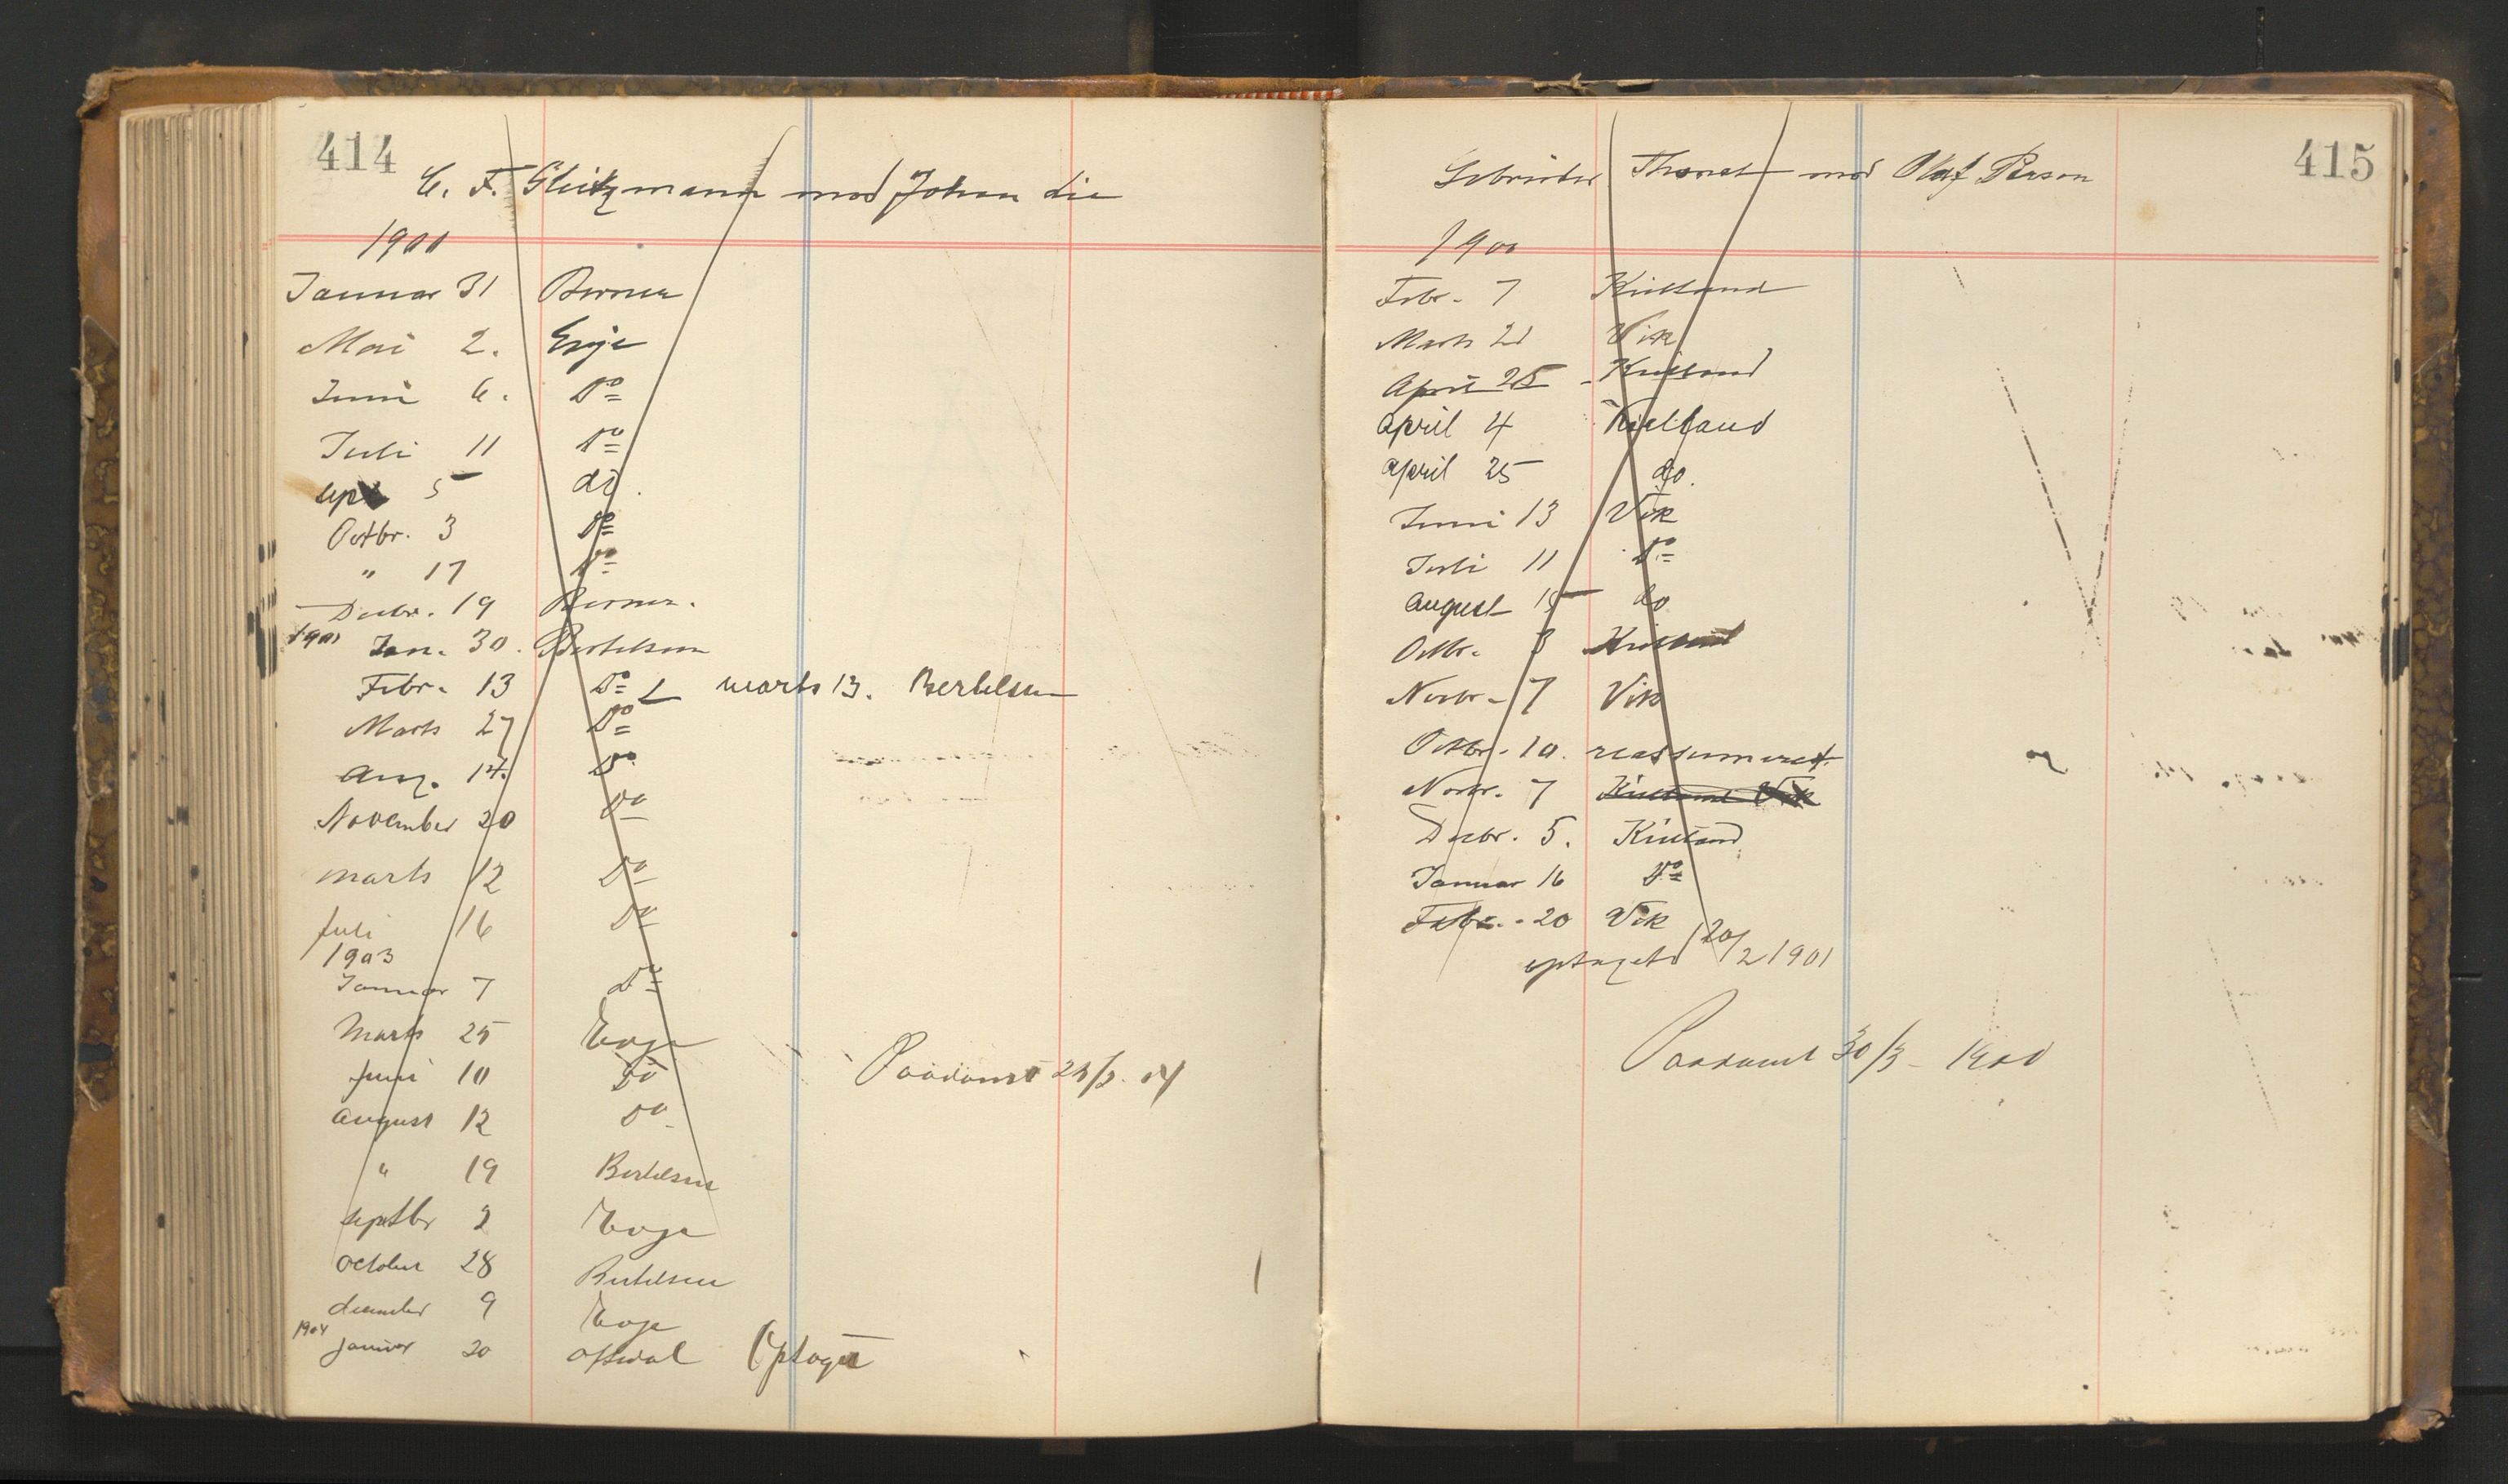 414
C. F. Gleitzmann mod Johan Lie
1900
Januar 31 Berner
Mai 2. Eeje
Juni 6. Do
Juli 11 Do
sept 5 do.
Octbr. 3 Do
" 17 Do
Decbr. 19 Berner.
1901 Jan. 30. Bertelsen
Febr. 13 Do marts 13. Bertelsen
Marts 27 Do
Aug. 14. Do
November 20 Do
marts 12 Do
Juli 16 Do
1903
Januar 7 Do
Marts 25 Eoje
Juni 10 Do
August 12 Do
" 19 Bertelsen
septbr 2 Eoje
October 28 Bertelsen
december 9 Eoje
1904
januar 20 Optaget
Paadømt
415
Gebrüder Thonet mod Olaf Person
1900
Febr. 7 Kielland
Marts 21 Vik
April 25 Kielland
april 4 Kielland
april 25 do.
Juni 13 Vik
Juli 11 Do
august 15 do
Octbr. 3 Kielland
Novbr. 7 Vik
Octbr. 10. reassumeret
Novbr. 7 Kielland Vik
Decbr. 5. Kielland
Januar 16 Do
Febr. 20 Vik
optaget 20/2 1901
Paadømt 30/3 - 1900